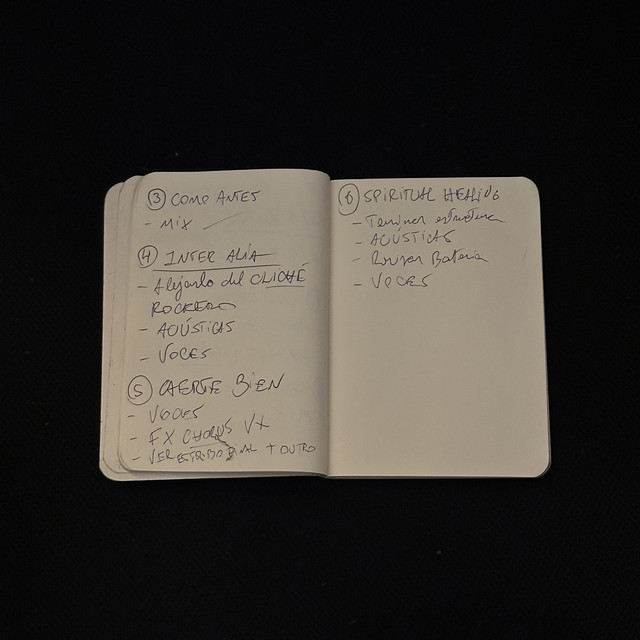 ③ COMO ANTES
- MIX
④ INTER ALIA
- Alejarlo del CLICHÉ
ROCKERO
- ACÚSTICAS
- VOCES
⑤ CAERTE BIEN
- VOCES
- FX CHORUS VX
- VER ESTRIBO FINAL + OUTRO
⑥ SPIRITUAL HEALING
- Terminar estructura
- ACÚSTICAS
- Batería
- VOCES